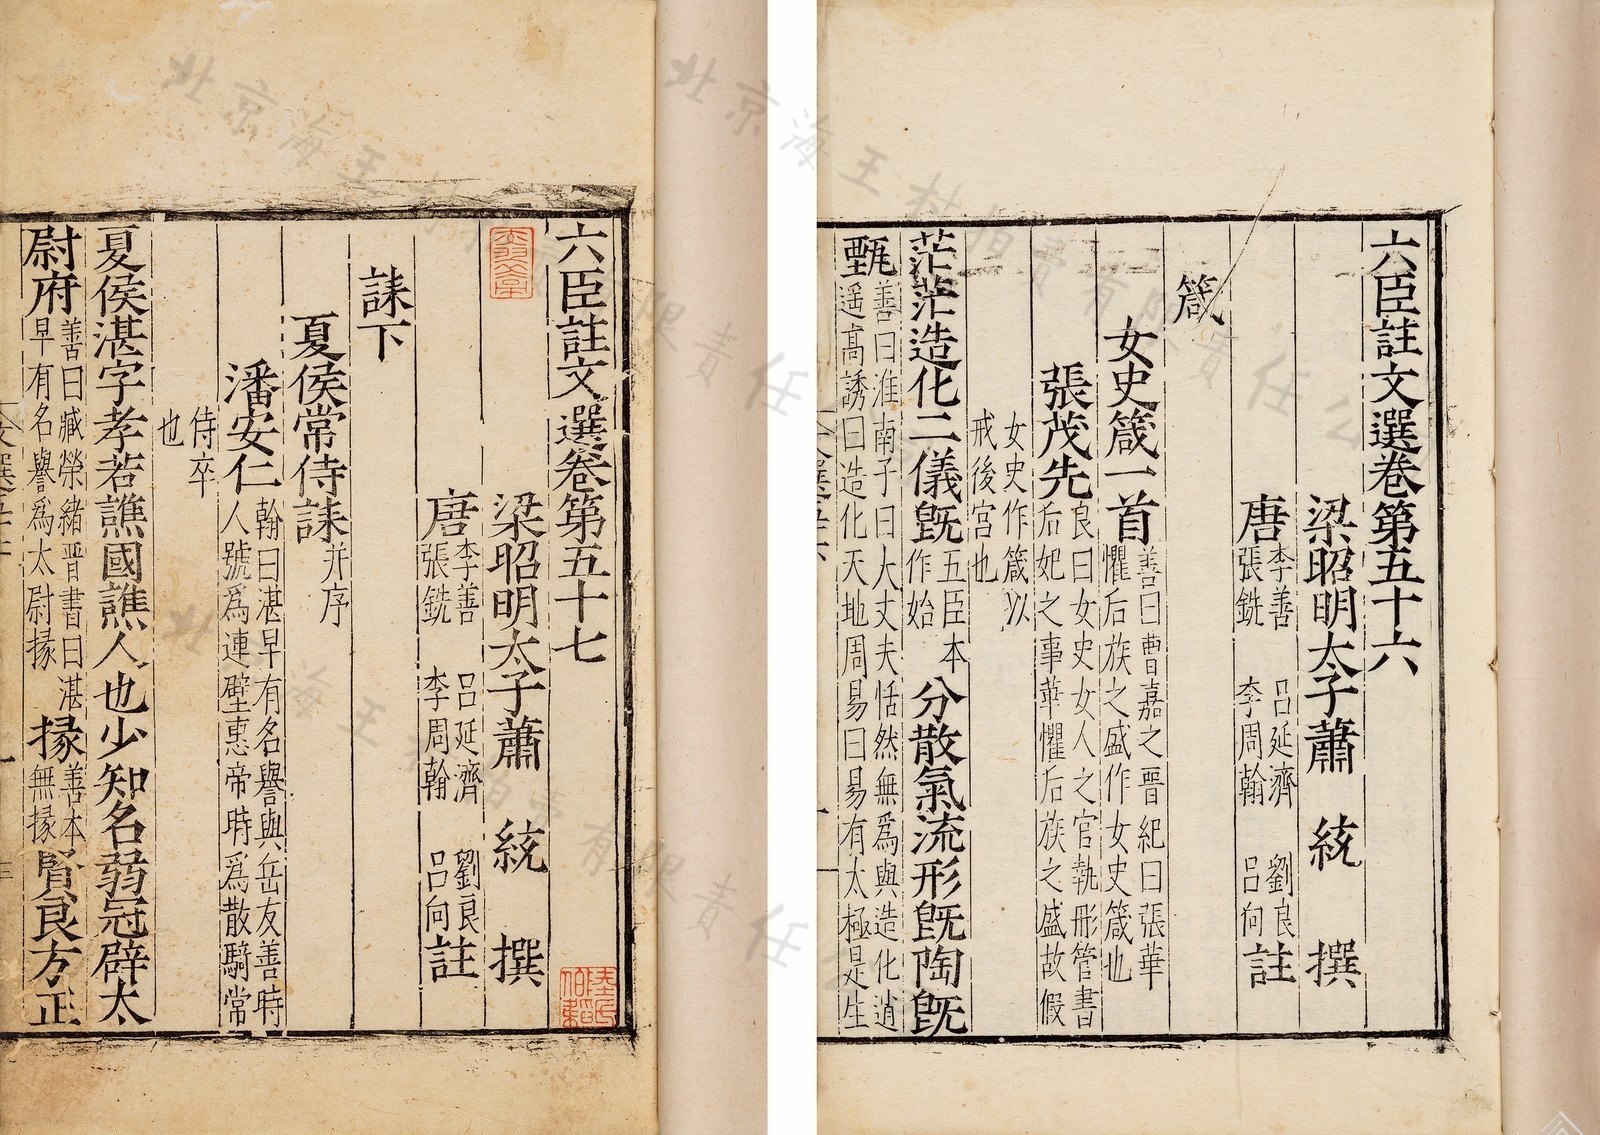 六臣註文選卷第五十六
梁昭明太子蕭 統 撰
唐李善 呂延濟 劉良張銑 李周翰 呂向註
箴
女史箴一首善曰曹嘉之晉紀曰張華懼后族之盛作女史箴也
張茂先良曰女史女人之官執彤管書后妃之事華懼后族之盛故假
女史作箴以戒後宮也
茫茫造化二儀既五臣本作始分散氣流形既陶既
甄善曰淮南子曰大丈夫恬然無爲與造化逍遥高誘曰造化天地周易曰易有太極是生
六臣註文選卷第五十七
梁昭明太子蕭 統 撰
唐李善 呂延濟 劉良張銑 李周翰 呂向註
誄下
夏侯常侍誄并序
潘安仁翰曰湛早有名譽與岳友善時人號爲連璧惠帝時爲散騎常
侍卒也
夏侯湛字孝若譙國譙人也少知名弱冠辟太
尉府善曰臧榮緒晉書曰湛早有名譽爲太尉掾掾善本無掾賢良方正
北京海王村拍賣有限責任公司